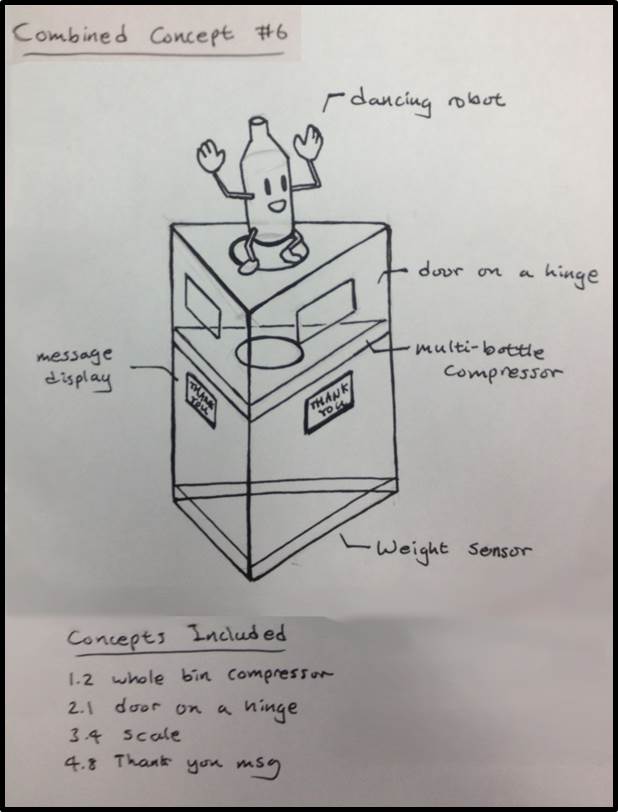 Combined Concept #6
dancing robot
door on a hinge
message
display
multi-bottle
compressor
THANK
YOU
THANK
YOU
Weight sensor
Concepts Included
1.2 whole bin compressor
2.1 door on a hinge
3.4 scale
4.8 Thank you msg